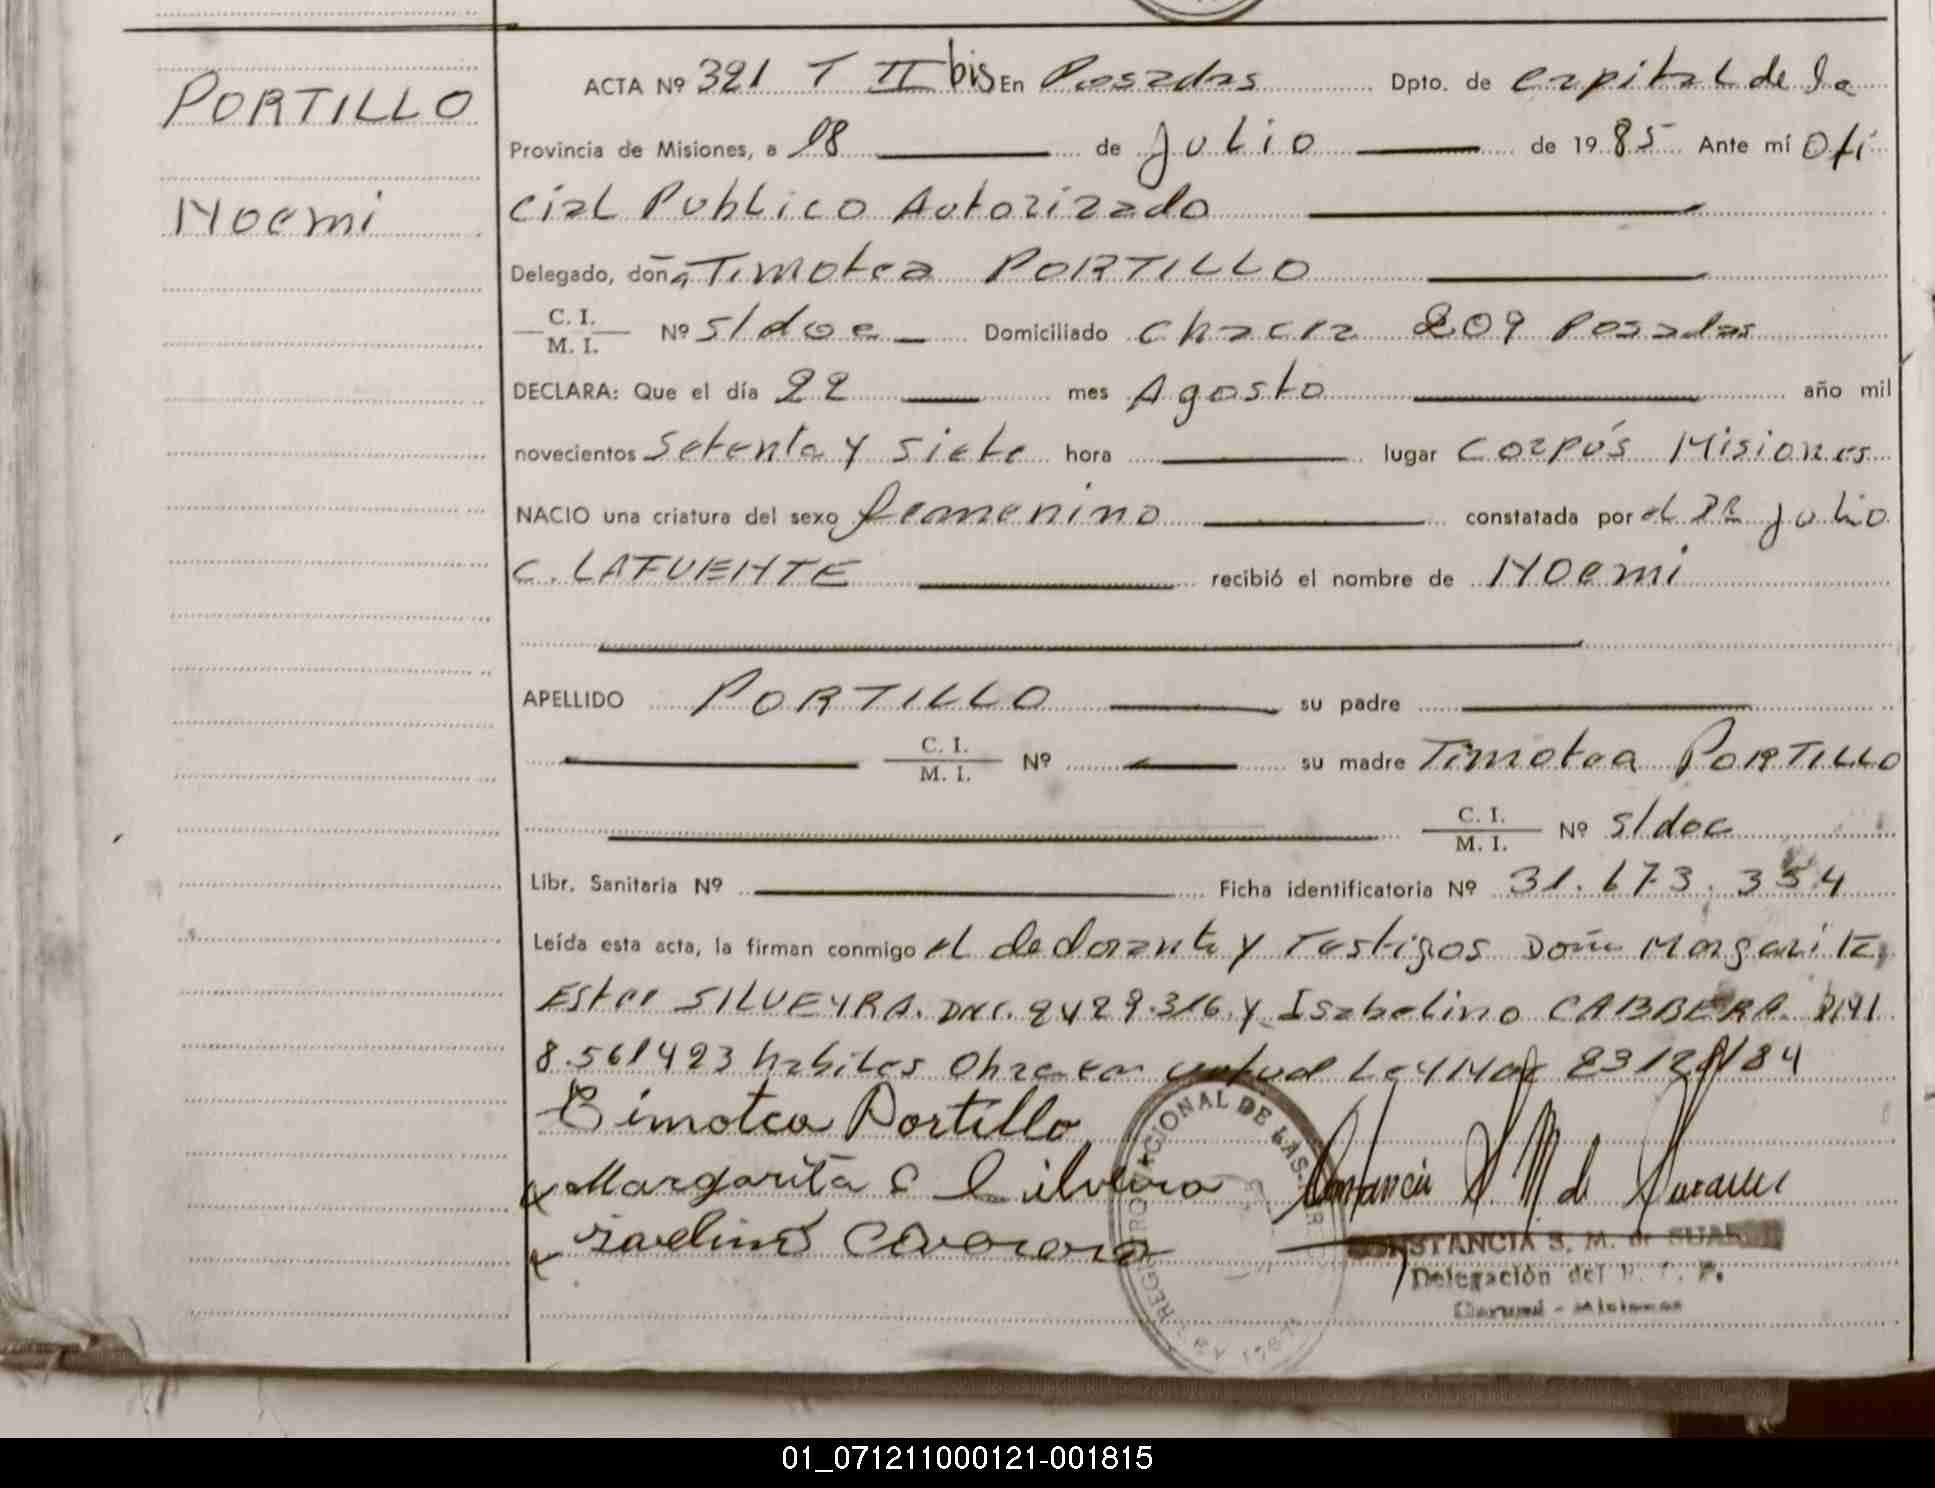 PORTILLO
Noemi
ACTA Nº 321 T II bis En Posadas Dpto. de capital de la
Provincia de Misiones, a 18 de Julio de 1985 Ante mí Ofi
cial Publico Autorizado
Delegado, doña Timotea PORTILLO
C. I.
M. I. Nº s/doc Domiciliado Chacra 209 Posadas
DECLARA: Que el día 22 mes Agosto año mil
novecientos setenta y siete hora lugar Corpús Misiones
NACIO una criatura del sexo femenino constatada por el Julio
C. LAFUENTE recibió el nombre de Noemi
APELLIDO PORTILLO su padre
C. I.
M. I. Nº su madre Timotea PORTILLO
C. I.
M. I. Nº s/doc
Libr. Sanitaria Nº Ficha identificatoria Nº 31.673.354
Leída esta acta, la firman conmigo el declarante y Testigos Doña Margarita
Ester SILVEYRA. 2429.316 y Isabelino CABRERA.
8.561423 habiles Ley 23128/84
Timotea Portillo
Margarita E Silveira
CONSTANCIA S. M. de SUAREZ
Delegación del R. C. P.
REGISTRO PROVINCIAL DE LAS PER
01_071211000121-001815